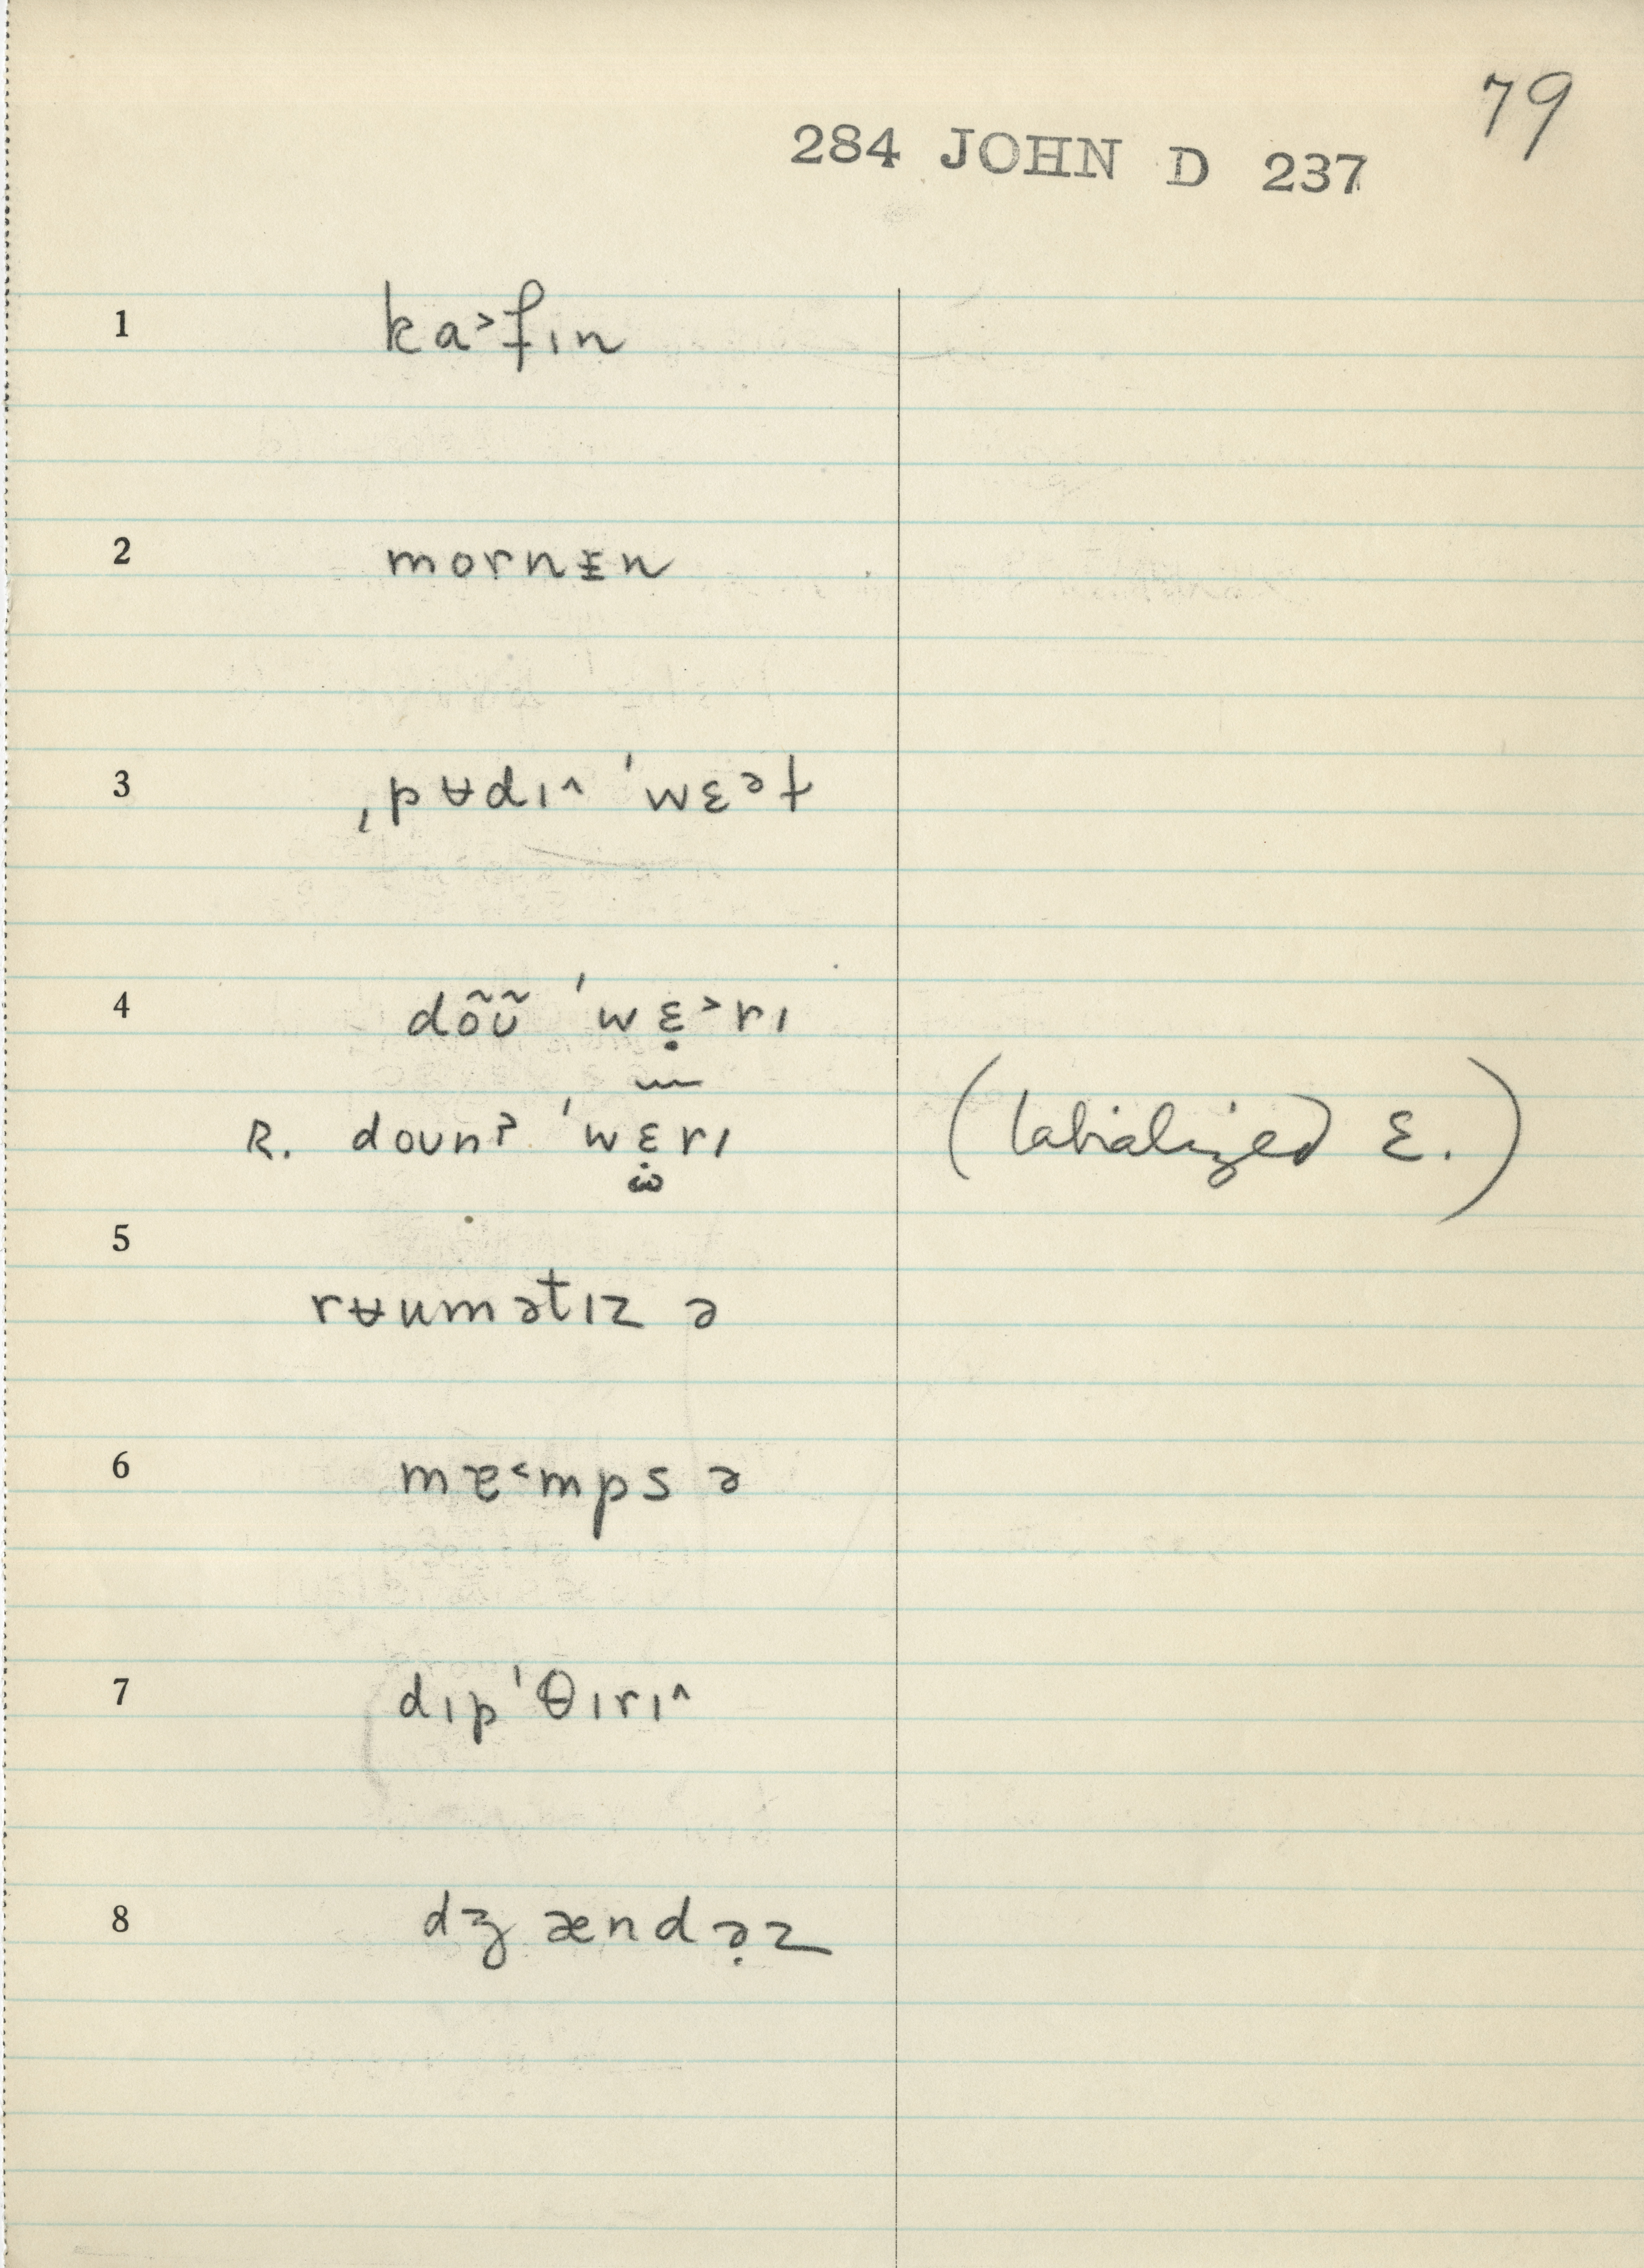 79
284 JOHN D 237
1 ka˃fɪn
2 mornɪ̵n
3 ˌpɐdɪ^ ˈwɛət
4 dõʊ̃ ˈwɛ̣˃rɪ
R. doʊnʔ ˈwɛ̣rɪ (labialized ɛ.)
5
rɐumətɪz ə
6 mæ˂mps ə
7 dɪpˈθɪrɪ^
8 dʒændə̣z